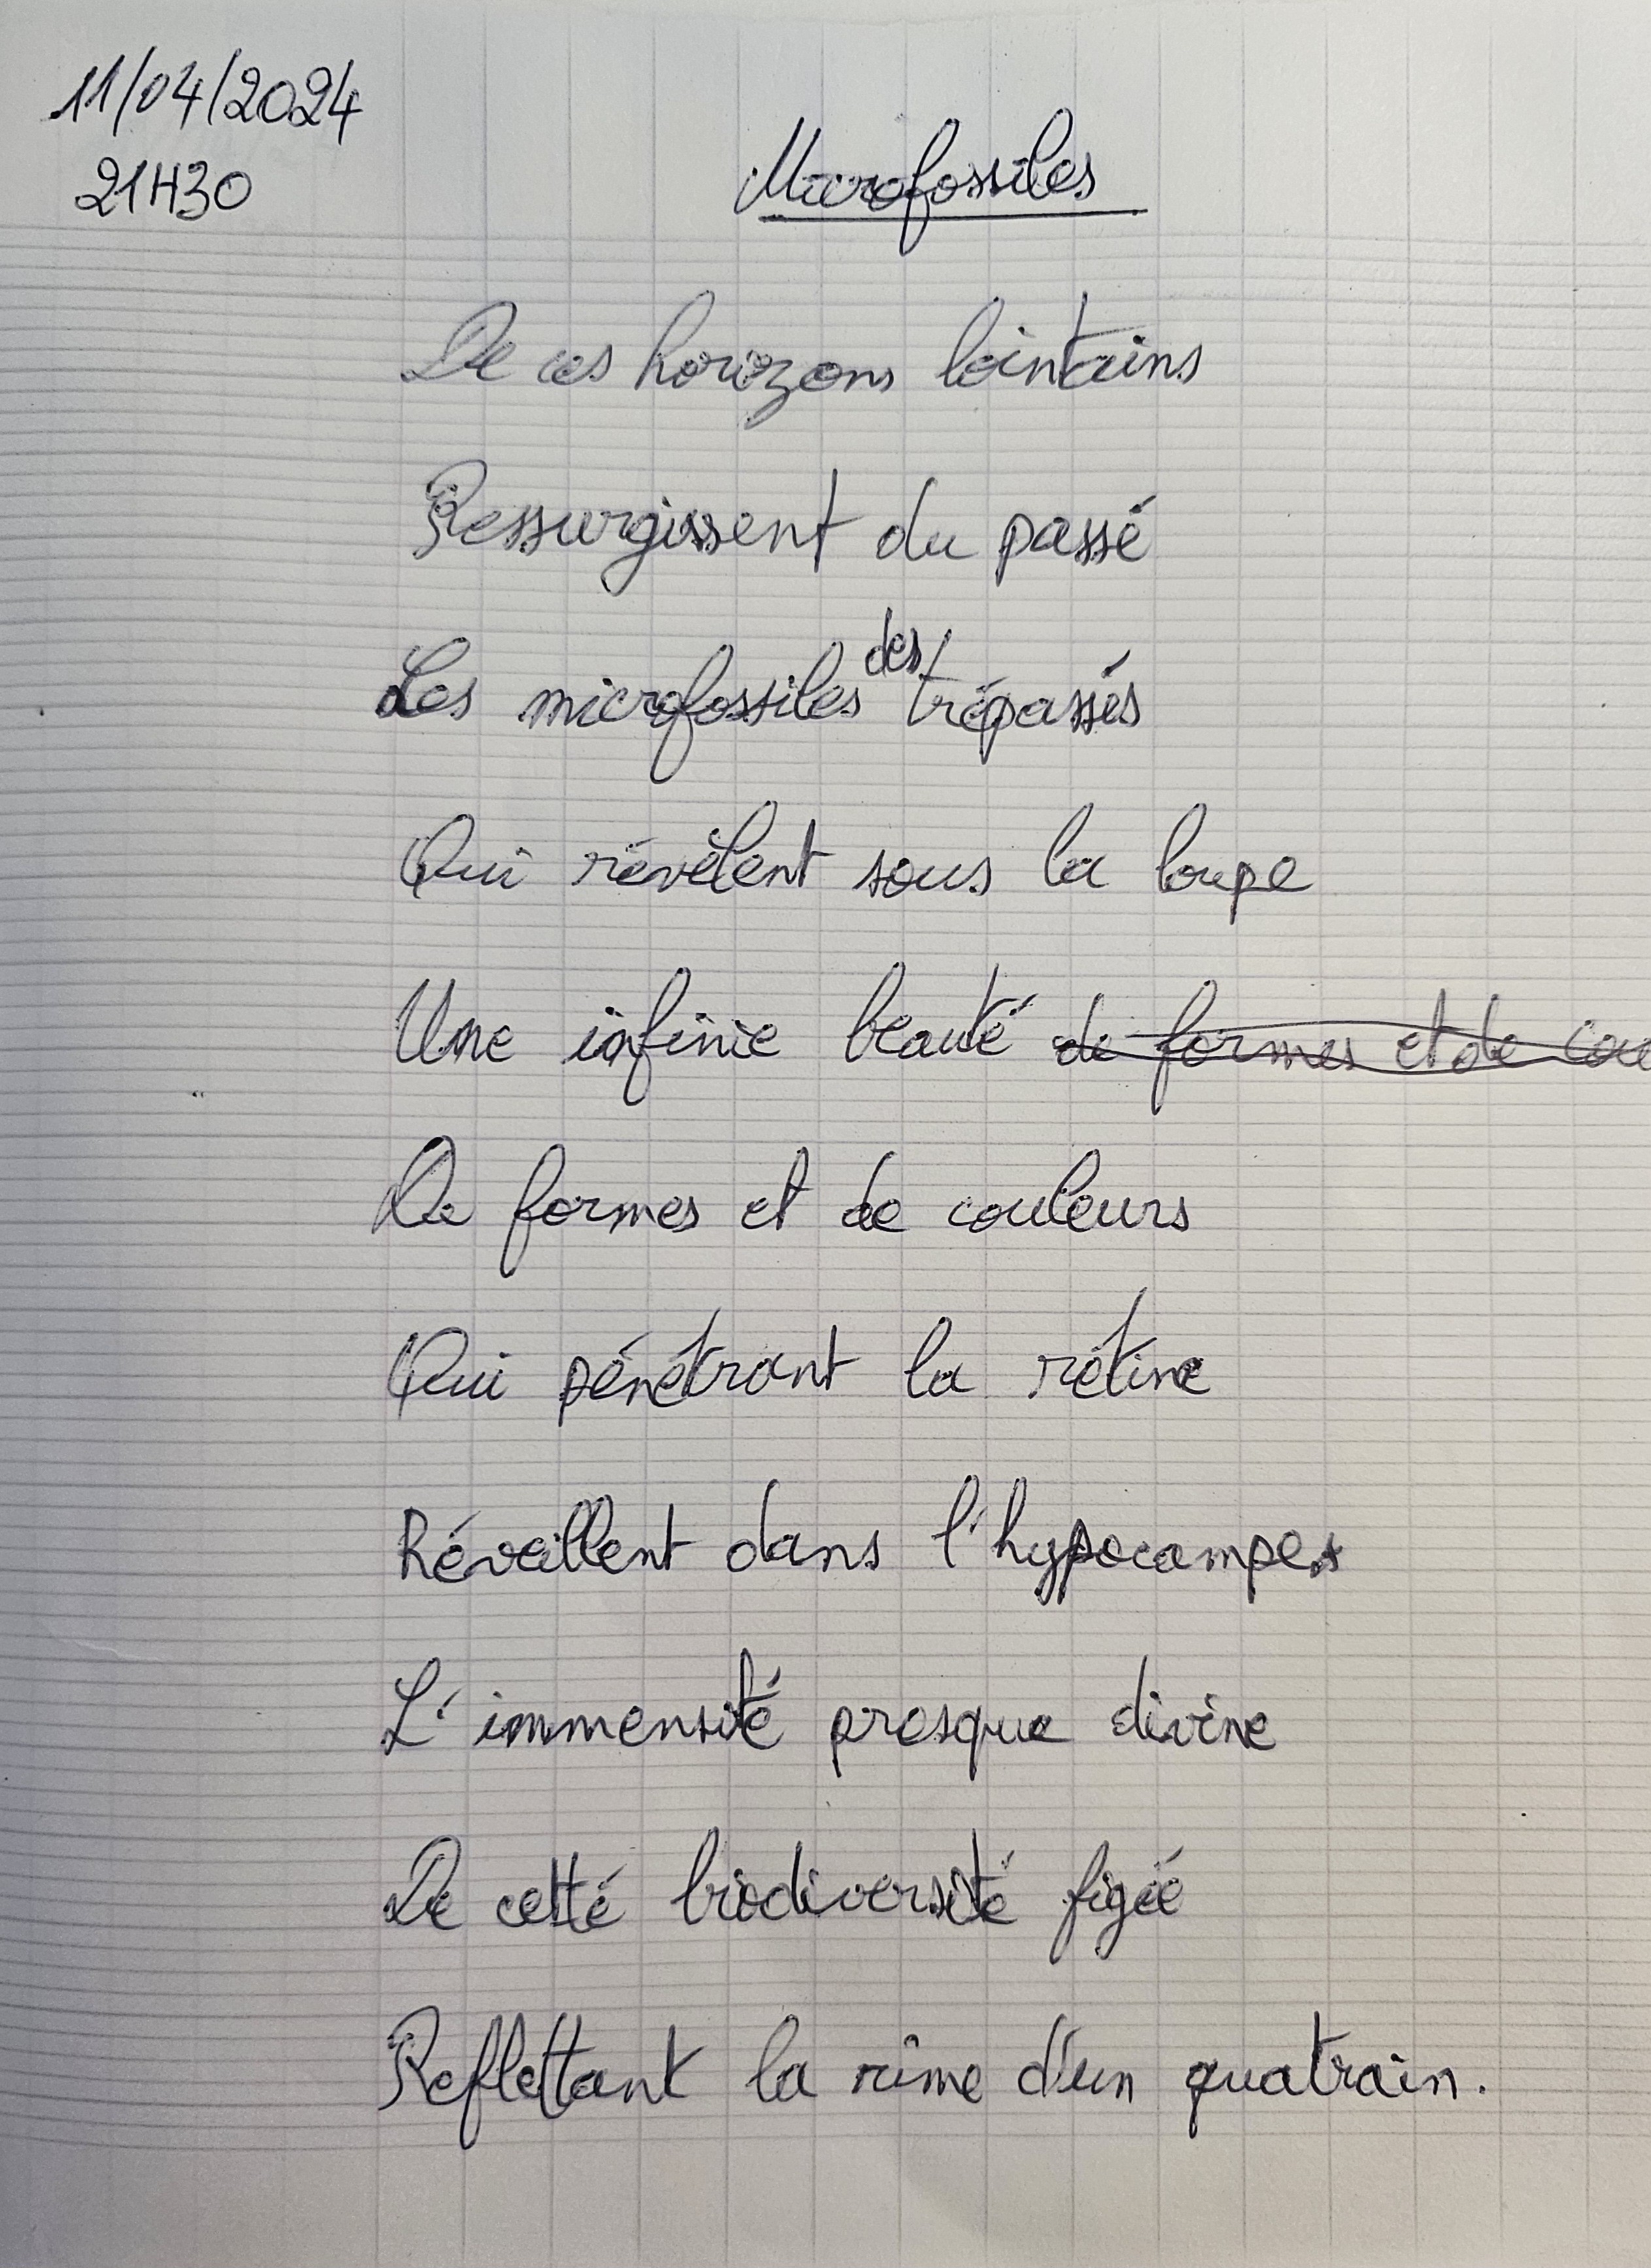 11/04/2024
21H30
Microfossiles
De ces horizons lointains
Ressurgissent du passé
Les microfossiles des trépassés
Qui révèlent sous la loupe
Une infinie beauté de formes et de cou
De formes et de couleurs
Qui pénétrant la rétine
Réveillent dans l'hypocampe
L'immensité presque divine
De cetté biodiversité figée
Reflettant la rime d'un quatrain.